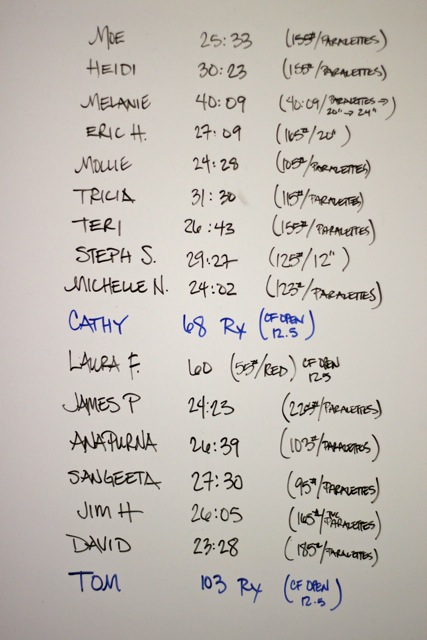 MOE 25:33 (155#/PARALETTES)
HEIDI 30:23 (155#/PARALETTES)
MELANIE 40:09 (40:09/PARALETTES → 20" → 24")
ERIC H. 27:09 (165#/20")
MOLLIE 24:28 (105#/PARALETTES)
TRICIA 31:30 (115#/PARALETTES)
TERI 26:43 (155#/PARALETTES)
STEPH S. 29:27 (125#/12")
MICHELLE N. 24:02 (123#/PARALETTES)
CATHY 68 Rx (CF OPEN 12.5)
LAURA F. 60 (55#/RED) CF OPEN 12.5
JAMES P 24:23 (225#/PARALETTES)
ANAPURNA 26:39 (103#/PARALETTES)
SANGEETA 27:30 (95#/PARALETTES)
JIM H 26:05 (165#/PARALETTES)
DAVID 23:28 (185#/PARALETTES)
TOM 103 Rx (CF OPEN 12.5)